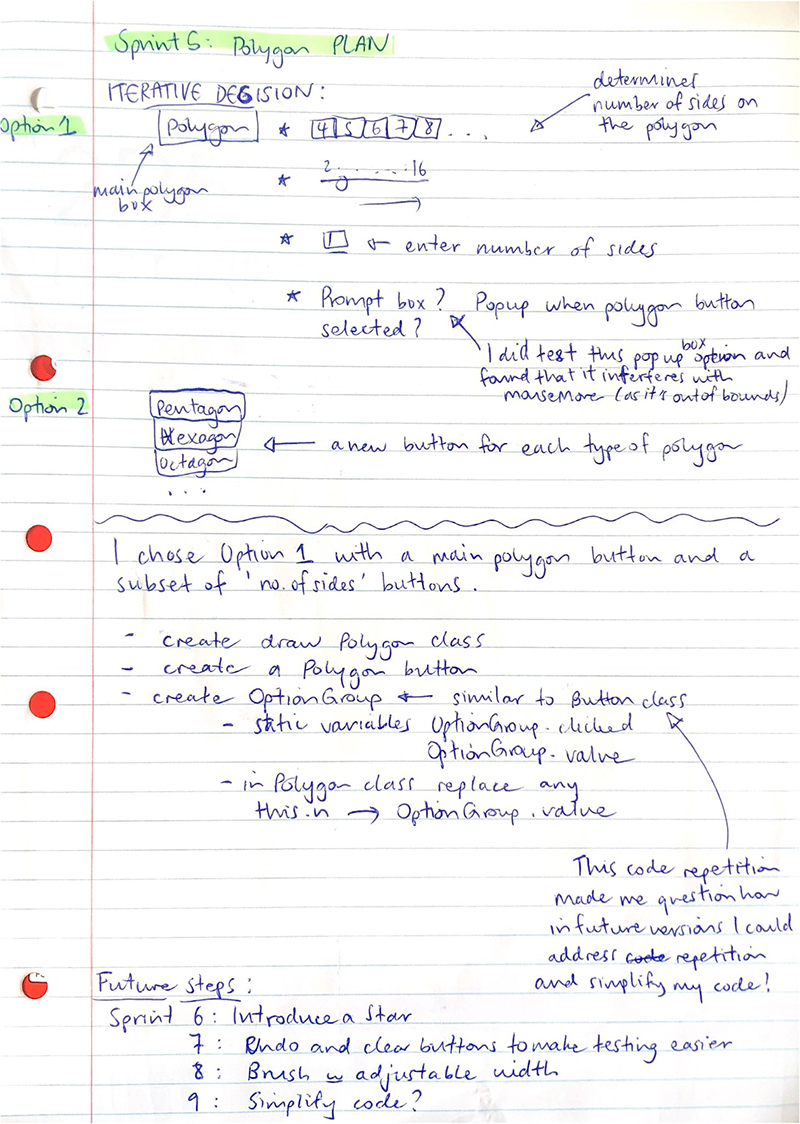 Sprint 5: Polygon PLAN
ITERATIVE DECISION:
determines
number of sides on
the polygon
Option 1
Polygon * 4 5 6 7 8 . . .
main polygon
box
* 2 . . . . . . 16
* ← enter number of sides
* Prompt box? Popup when polygon button
selected?
I did test this popup box option and
found that it interferes with
mouseMove (as it's out of bounds)
Option 2
Pentagon
Hexagon
Octagon
. . .
← a new button for each type of polygon
I chose Option 1 with a main polygon button and a
subset of 'no. of sides' buttons.
- create draw Polygon class
- create a Polygon button
- create OptionGroup ← similar to Button class
- static variables OptionGroup.clicked
OptionGroup.value
- in Polygon class replace any
this.n → OptionGroup.value
This code repetition
made me question how
in future versions I could
address code repetition
and simplify my code!
Future steps:
Sprint 6: Introduce a Star
7: Undo and clear buttons to make testing easier
8: Brush w adjustable width
9: Simplify code?